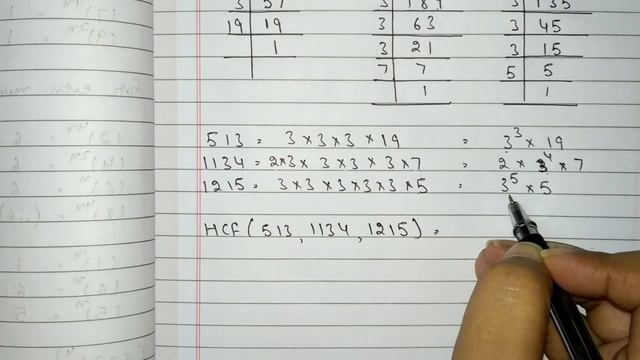 3 57 3 189 3 135
19 19 3 63 3 45
1 3 21 3 15
7 7 5 5
1 1
513 = 3 × 3 × 3 × 19 = 3³ × 19
1134 = 2×3× 3 × 3 × 3 × 7 = 2 × 3⁴ × 7
1215 = 3 × 3 × 3 × 3 × 3 × 5 = 3⁵ × 5
HCF (513, 1134, 1215) =